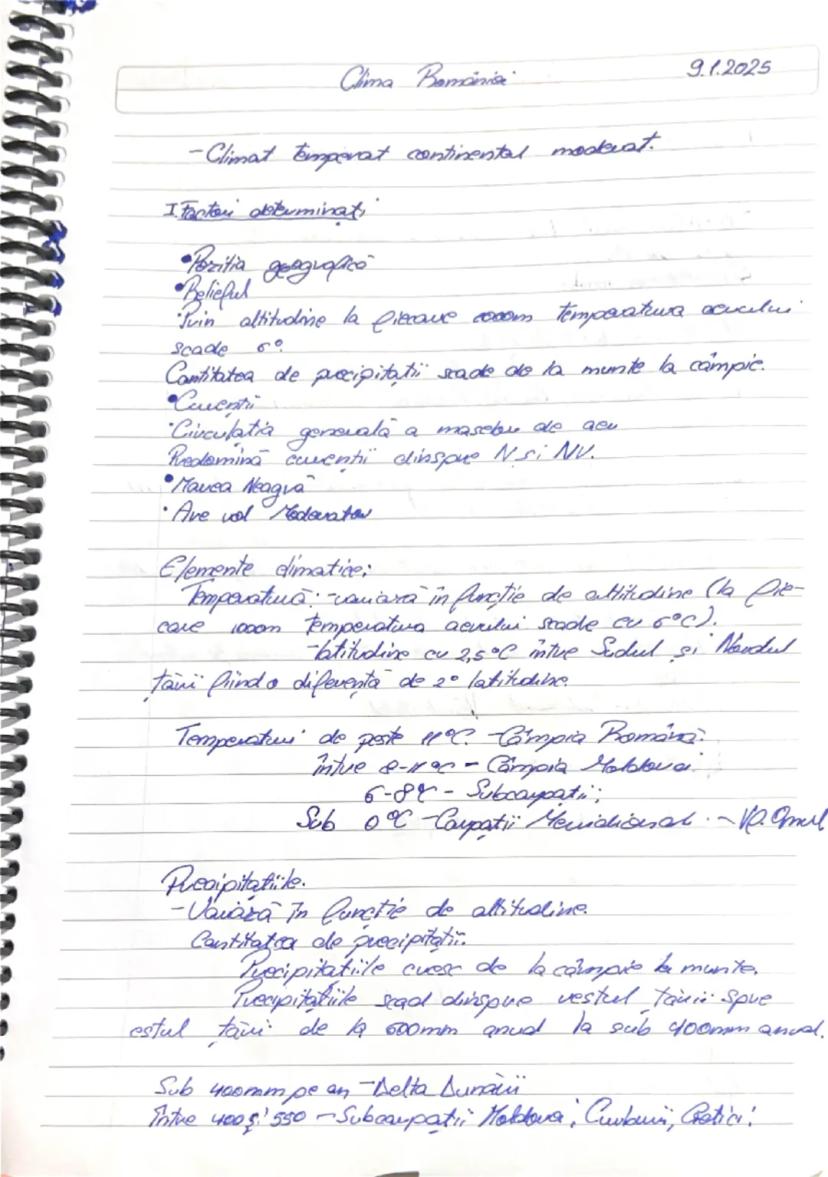 Clima României 9.1.2025
- Climat temperat continental moderat.
I. Factori determinați
• Poziția geografică
• Relieful
• Prin altitudine la fiecare 1000m temperatura aerului
scade 6°
Cantitatea de precipitații scade de la munte la câmpie.
• Curenții
• Circulația generală a maselor de aer
Predomină curenții dinspre N și NV.
• Marea Neagră
• Are rol Moderator
Elemente climatice:
Temperatură: - variază în funcție de altitudine (la fie-
care 1000m temperatura aerului scade cu 6°C).
- latitudine cu 2,5°C între Sudul și Nordul
țării fiind o diferență de 2° latitudine.
Temperaturi de peste 11°C - Câmpia Română
între 8-11°C - Câmpia Moldovei
6-8°C - Subcarpații;
Sub 0°C - Carpații Meridionali - Vf. Omul
Precipitațiile.
- Variază în funcție de altitudine.
Cantitatea de precipitații.
Precipitațiile cresc de la câmpie la munte.
Precipitațiile scad dinspre vestul țării spre
estul țării de la 600mm anual la sub 400mm anual.
Sub 400mm pe an - Delta Dunării
Între 400 și 550 - Subcarpații Moldovei, Curburii, Getici;